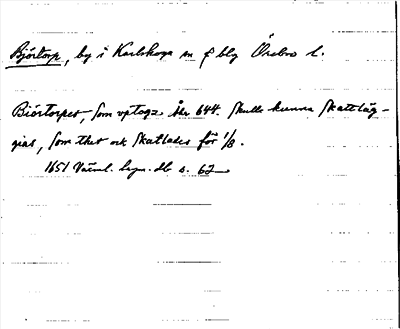 Björtorp, by i Karlskoga sn o f bbg Örebro l.
Biörtorpet, som vptogz åhr 644. skulle kunna skatteläg-
gias, som thet ock skatlades för 1/8.
1651 Värml. lagn. db s. 62